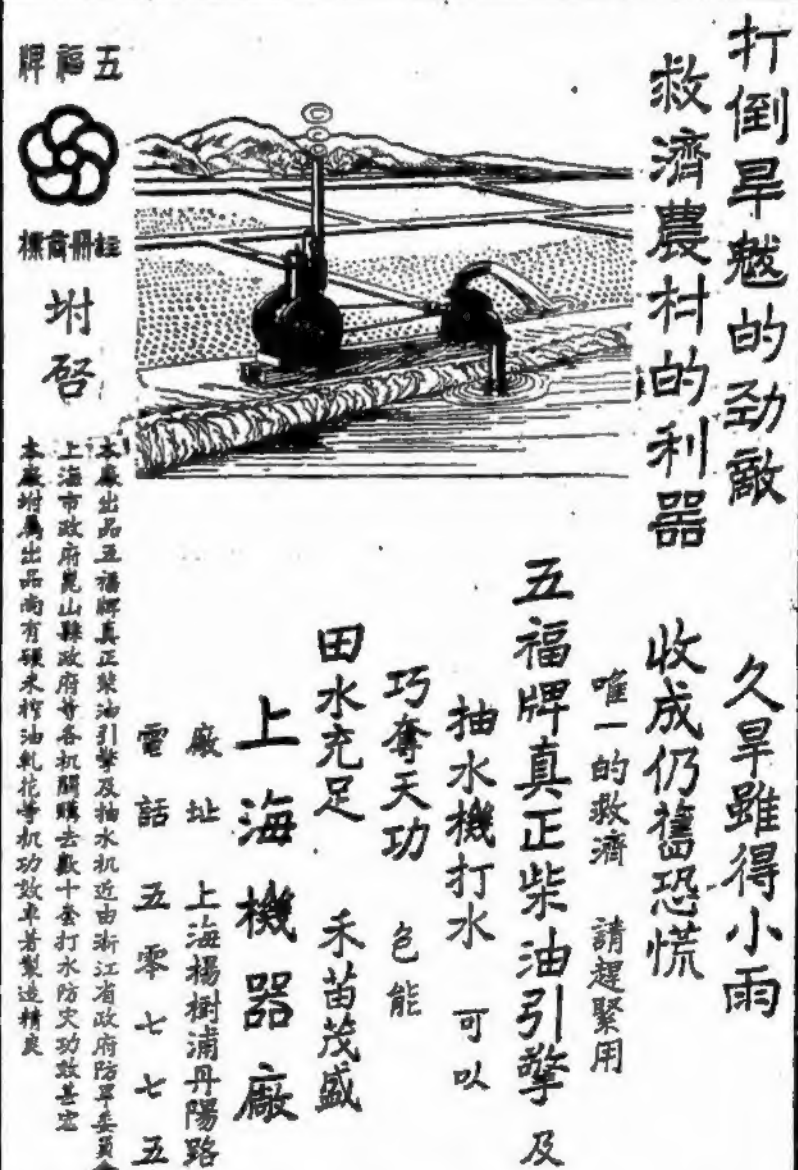 打倒旱魃的劲敵 久旱雖得小雨
救濟農村的利器 收成仍舊恐慌
唯一的救濟 請趕緊用
五福牌真正柴油引擎及
抽水機打水 可以
巧奪天功 包能
田水充足 禾苗茂盛
上海機器廠
廠址 上海楊樹浦丹陽路
電話 五零七七五
五福牌
註冊商標
坿啓
本廠出品五福牌真正柴油引擎及抽水机近由浙江省政府防旱委員會
上海市政府崑山縣政府等各机關購去數十套打水防灾功效甚宏
本廠坿屬出品尚有碾米榨油軋花等机功效卓著製造精良